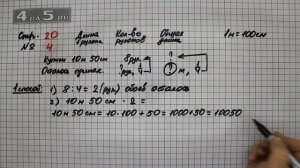 4au5.ru
Стр. 20 Длина Кол-во Общая 1м = 100см
№ 4 1 рулона рулонов длина
Купили 10м 50см 8рул.
Остаток одинак. ? рул. ? м,
1 способ: 1) 8 : 4 = 2 (рул) обоев осталось
2) 10м 50см · 2 =
10м 50см = 10 · 100 + 50 = 1000 + 50 = 10050